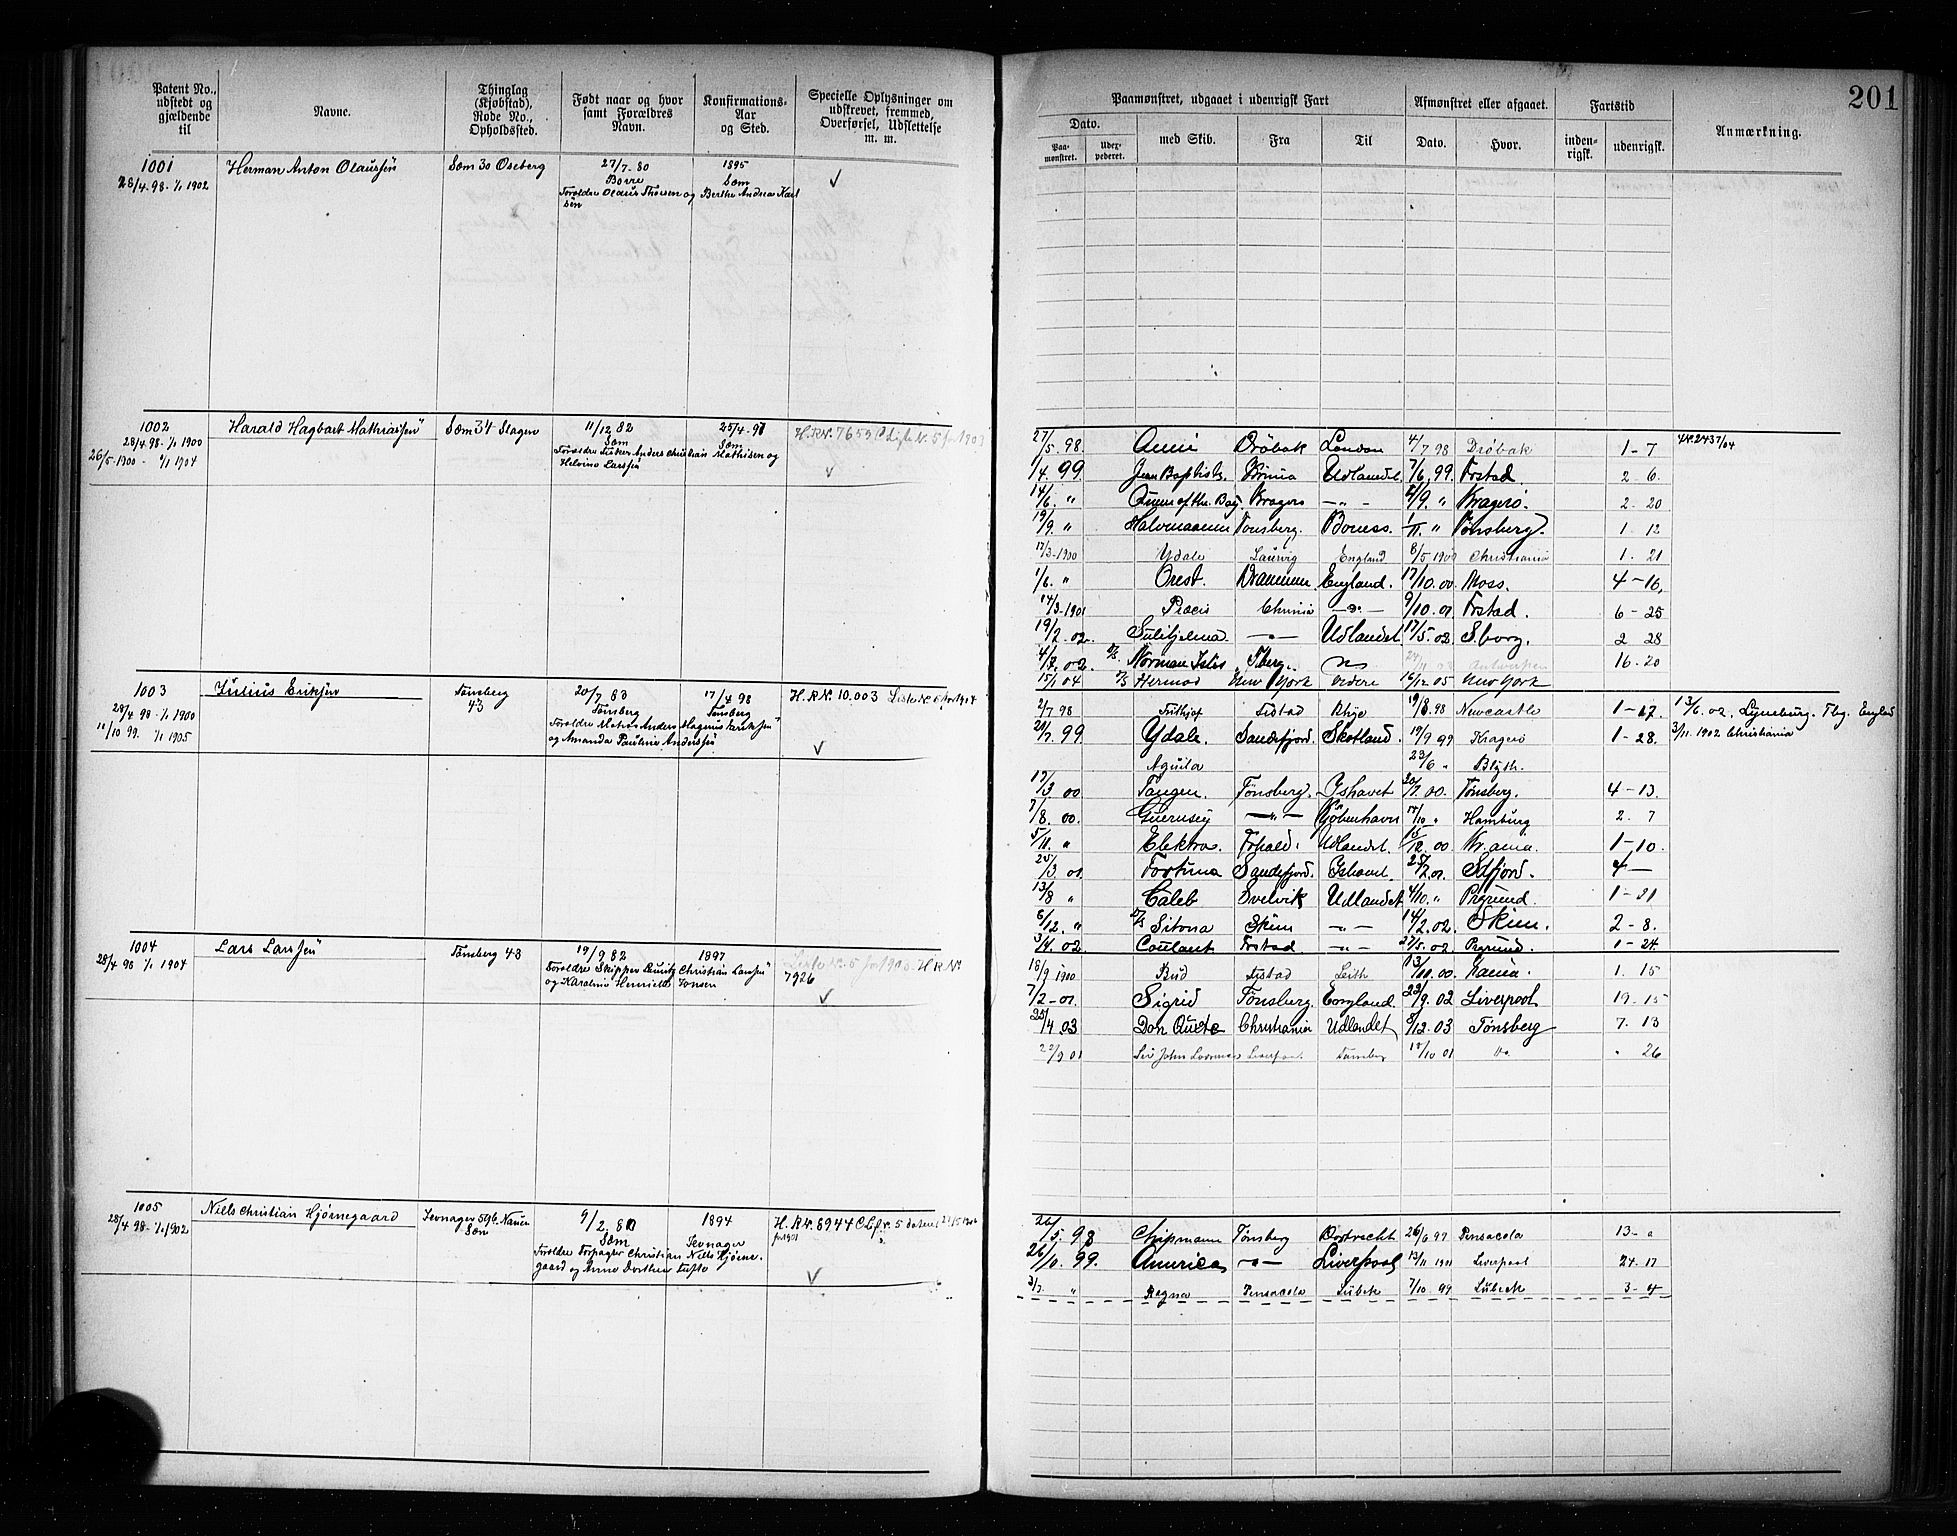 201
Patent No., udstedt og gjældende til | Navne. | Thinglag (Kjøbstad), Rode No., Opholdssted. | Født naar og hvor samt Forældres Navn. | Konfirmations-Aar og Sted. | Specielle Oplysninger om udskrevet, fremmed, Overførsel, Udslettelse m. m.
Paamønstret, udgaaet i udenrigsk Fart | Afmønstret eller afgaaet. | Fartstid | Anmærkning.
Dato. | med Skib. | Fra | Til | Dato. | Hvor. | inden-rigsk. | udenrigsk.
Paa-mønstret. | Udex-pederet.
1001 Herman Anton Olaussen Sem 30 Oseberg 27/7-80 1895
28/4-98-1/1 1902 Borre Sem
Foreldre Olaus Thoresen og Berthe Andrea Karl
sen
1002 Harald Hagbart Mathiassen Sem 34 Slagen 11/12 82 25/4-97 H.R.Nr. 7655
28/4 98-1/1 1900 Sem Sem
26/5-1900- 1/1 1904 Foreldre Anders Christian Mathisen og
Helvine Larssen
27/5.98 Anni Drøbak London 4/7 98 Drøbak 1-7
1/4.99 Jean Baptiste Udlandet 7/6.99 Frstad 2 6.
14/6. " Queen of the Bay Kragerø -"- /9. " Kragerø. 2-20
19/9. " Halvmaanen Tønsberg. Boness. 1/11. " Tønsberg. 1-12
17/3-1900 Ydale Laurvig England 8/5 1900 Christiania 1. 21
1/6. " Orest. Drammen England. 17/10.00 Moss. 4-16,
14/3-1901 Chrnia -"- 9/10.01 Frstad. 6-25
19/2.02. Sulitjelma -"- Udlandet 17/5.02. S.borg. 2 28
4/7.02. Norman Isles Tberg. Antwerpen 16-20
15/1 04 Hermod New York videre 16/12 05 New York
1003 Julius Eriksen Tønsberg 43 20/7 83 17/4 98 H.R.Nr. 10.003
28/4 98-1/1 1900 Tønsberg Tønsberg
11/10 99. 1/1 1905 Foreldre Matros Anders Magnus Eriksen
og Amanda Pauline Anderssen
2/7.98 Frithjof Frstad Rhye 19/8.98 Newcastle 1-17. 13/6.02. Lyneburg. Tbg. England
Ydale. Sandefjord. Skotland. 19/9 99 Kragerø 1-28. 3/11.1902 Christiania
Aquila 23/6 " Blyth.
17/3 00 Tangen. Tønsberg. Ishavet 20/7.00. Tønsberg. 4-13.
7/8.00. Guernsey -"- Kjøbenhavn 17/10 " Hamburg 2. 7
5/11. " Elektra. Udlandet. 15/12.00 Kr.ania. 1-10.
25/3 01 Fortuna Sandefjord. Ishavet. Sdfjord. 4-
13/8 " Caleb Svelvik Udlandet 4/10. " Prgrund. 1-21
6/12. " Sitona Skien -"- 14/2.02. Skien. 2-8.
3/4.02 Coulant Frstad -"- 27/5.02 Prgrund. 1-24
1004 Lars Larssen Tønsberg 43 19/9 82 1897 H.R.Nr.
28/4 98 1/1 1904 Foreldre Skipper Lauritz Christian Larssen 7926
og Karoline Henriette Jonsen
18/9 1900 Bud Frstad Leith 13/11.00. 1. 15
7/2-01. Sigrid Tønsberg. England. 22/9.02 Liverpool 19-15
25/4 03 Don Quote Christiania Udlandet 8/12.03 Tønsberg 7. 13
22/9 01 Sir John Lawrence Liverpool Tønsberg 18/10 01 Do. " 26
1005 Niels Christian Hjørnegaard Jevnager 59b. 9/2.80 1894 H.R.Nr. 8944
28/4 98-1/1.1902 Sem Sem Jevnager for 1901
Foreldre Forpagter Christian Niels Hjørne-
gaard og Anne Dorthea Tufte
26/5.98 Chipmann Tønsberg Dortrecht 26/6 97 Pensacola 13-0
26/10.99. America -"- Liverpool 13/11 1901 Liverpool 24.17
Ragna Pensacola Lübeck 7/10.99 Lübeck 3-4